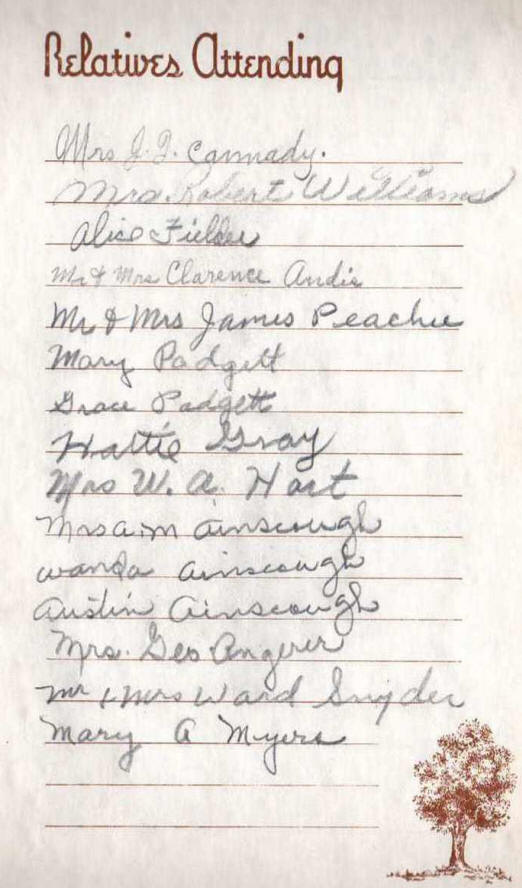 Relatives Attending
Mrs J. T. Cannady.
Mrs. Robert Williams
Alice Fielder
Mr & Mrs Clarence Andis
Mr & Mrs James Peachee
Mary Padgett
Grace Padgett
Hattie Gray
Mrs W. A. Hart
Mrs a.m Ainscough
wanda ainscough
Austin Ainscough
Mrs. Geo Angerer
Mr & Mrs Ward Snyder
Mary A Myers